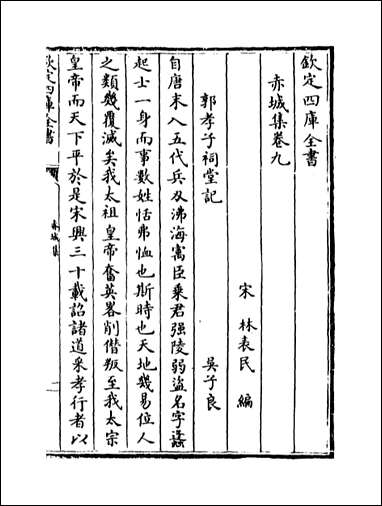 欽定四庫全書
赤城集卷九
宋 林表民 編
郭孝子祠堂記 吳子良
自唐末入五代兵刃沸海㝢臣乗君强陵弱盗名字蠭
起士一身而事數姓恬弗恤也斯時也天地幾易位人
之類幾覆滅矣我太祖皇帝奮英畧削僭叛至我太宗
皇帝而天下平於是宋興三十載詔諸道采孝行者以
欽定四庫全書
赤城集
一